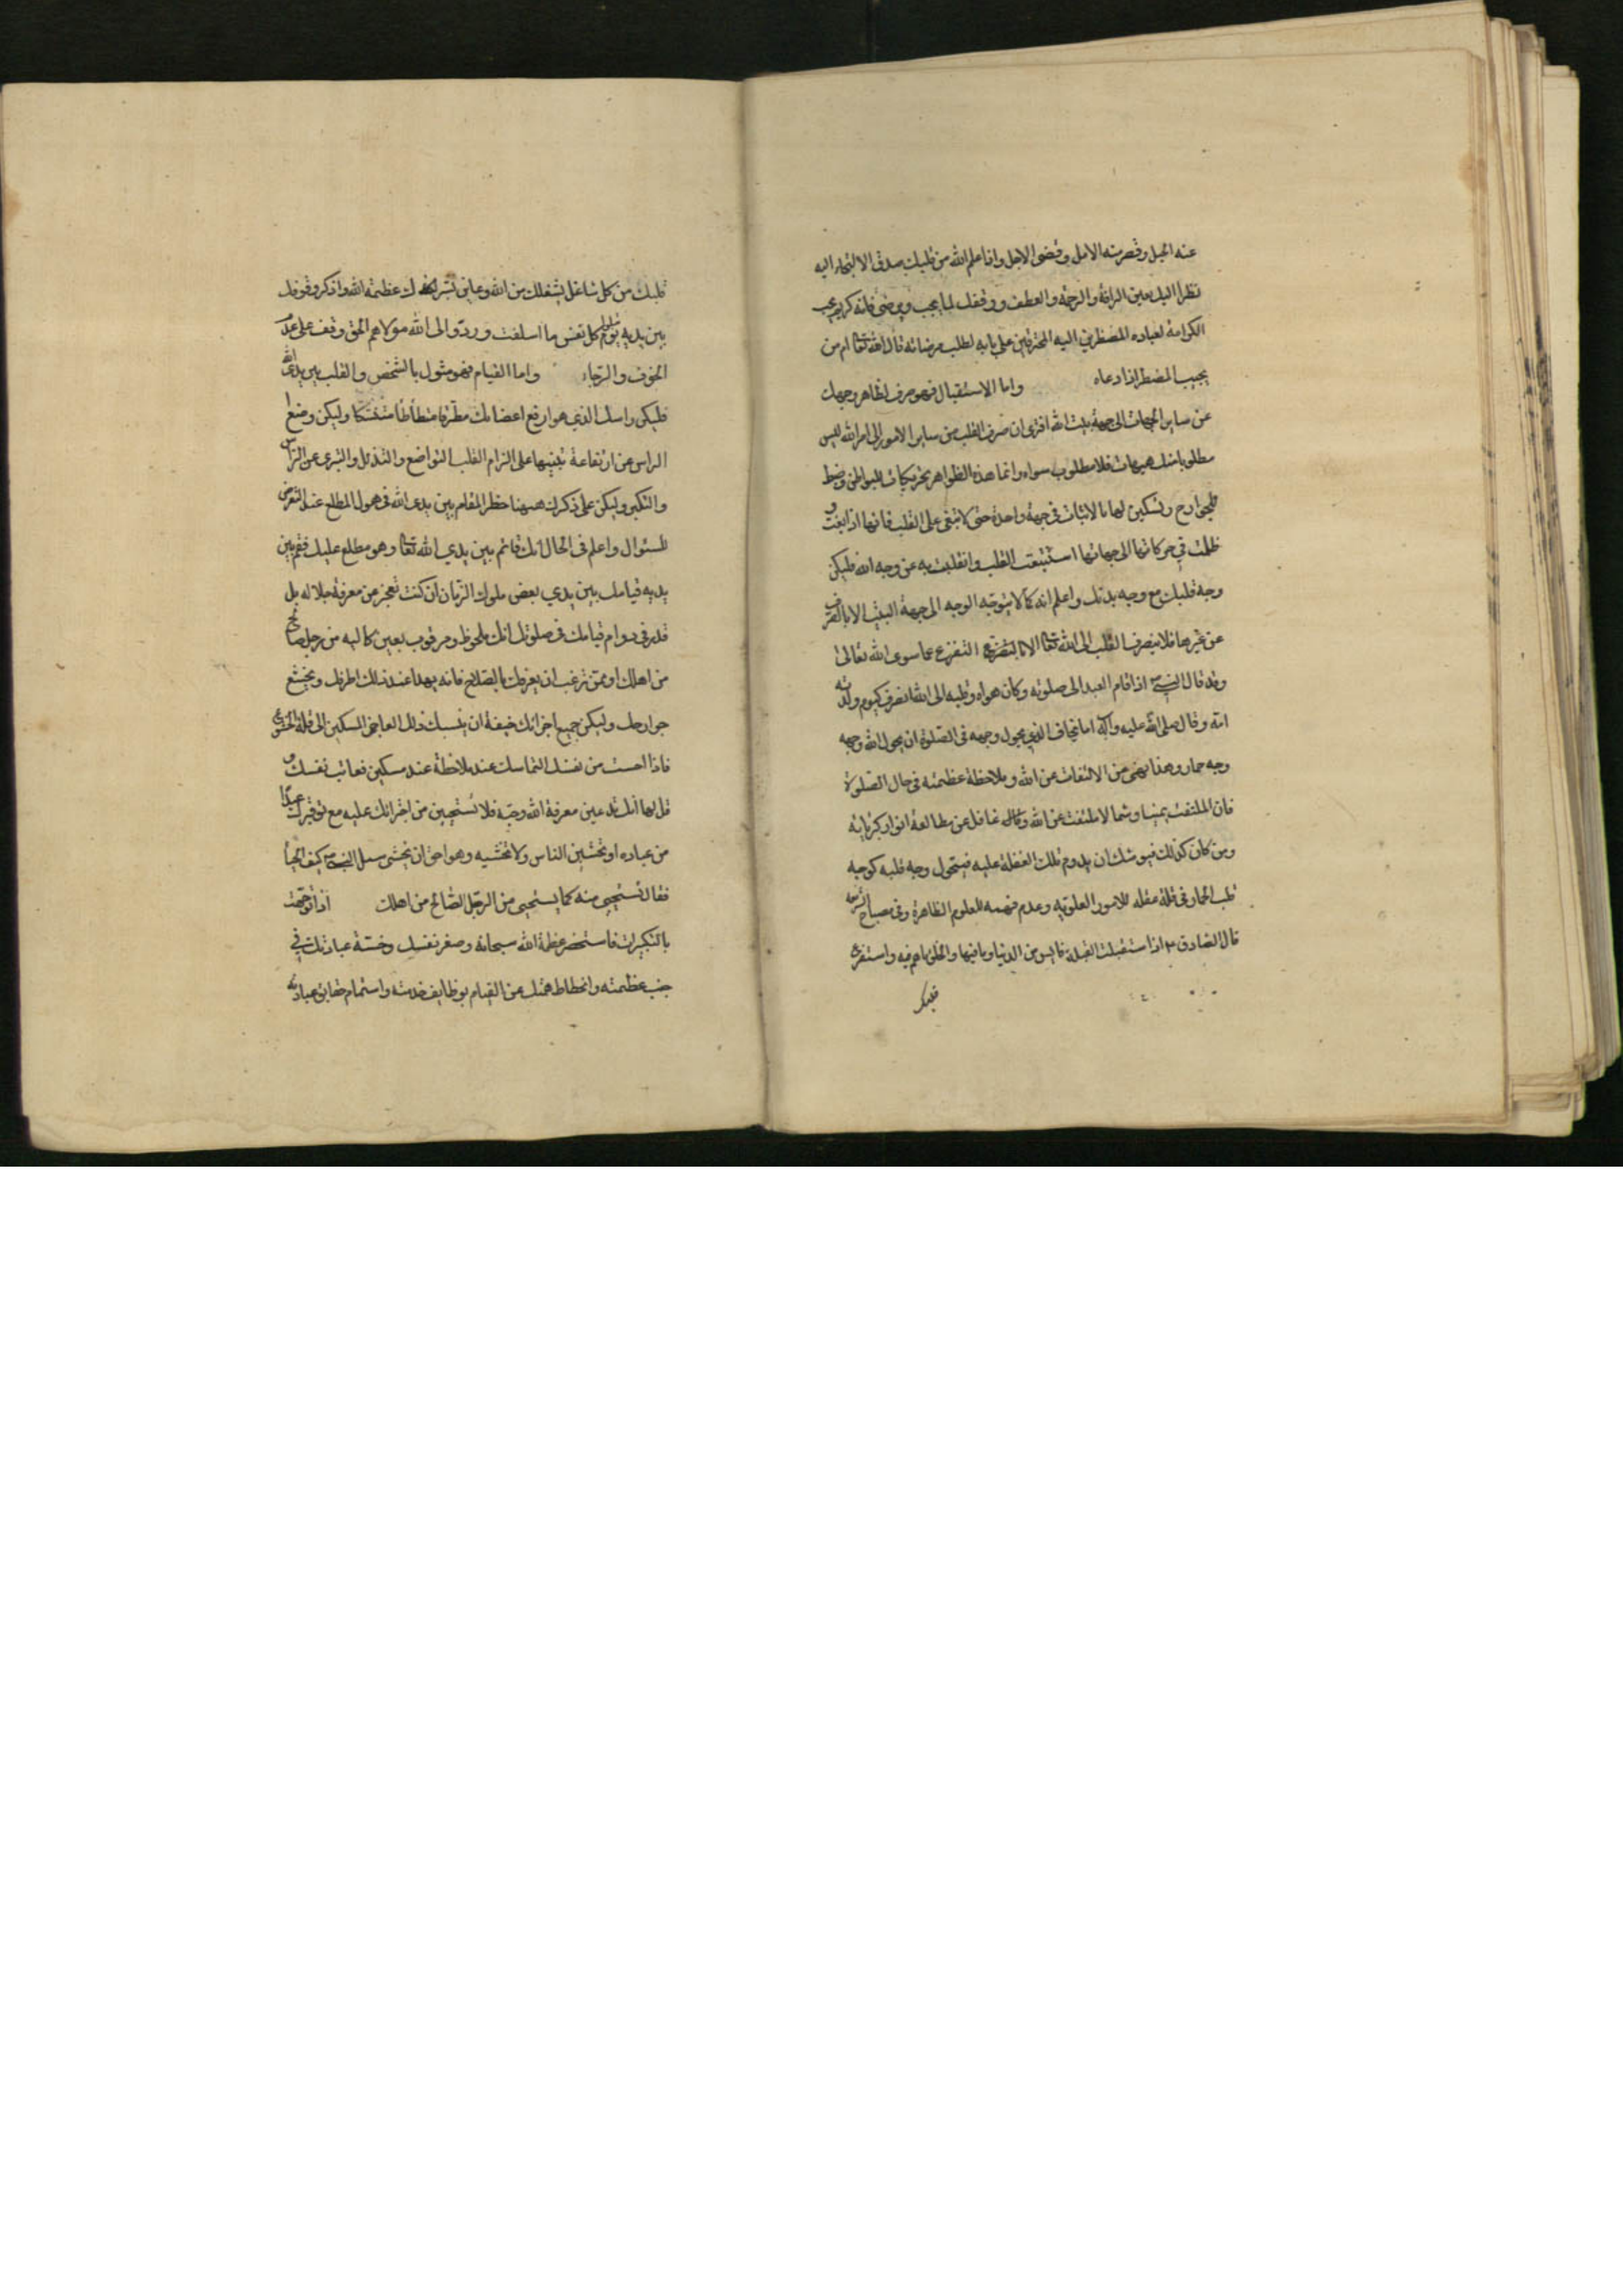 عنه الحيل وقصر منه الامل وقضى الاجل واذا علم الله من قلبك صدق الالتجاء اليه
نظر اليك بعين الرافة والرحمة والعطف ووفقك لما يحب ويرضى فانه كريم يحب
الكرامة لعباده المضطرين اليه المحترقين على بابه لطلب مرضاته قال الله تعا ام من
يجيب المضطر اذا دعاه واما الاستقبال فهو صرف لظاهر وجهك
عن ساير الجهات الى جهة بيت الله افترى ان صرف القلب من ساير الامور الى امر الله ليس
مطلوبا منك هيهات فلا مطلوب سواه وانما هذه الظواهر تحريكات للبواطن وضبط
للجوارح وتسكين لها بالاثبات في جهة واحدة حتى لا تبغى على القلب فانها اذا بغت و
ظلمت في حركاتها الى جهاتها استتبعت القلب وانقلبت به عن وجه الله فليكن
وجه قلبك مع وجه بدنك واعلم انه كما لا يتوجه الوجه الى جهة البيت الا بالصرف
عن غيرها فلا ينصرف القلب الى الله تعا الا بالتفرغ عما سوى الله تعالى
وقد قال النبي ص اذا قام العبد الى صلوته وكان هواه وقلبه الى الله انصرف كيوم ولدته
امه وقال صلى الله عليه وآله اما يخاف الذي يحول وجهه في الصلوة ان يحول الله وجهه
وجه حمار وهذا نهى عن الالتفات عن الله وملاحظة عظمته في حال الصلوة
فان الملتفت يمينا وشمالا ملتفت عن الله وغافل عن مطالعة انوار كبريائه
ومن كان كذلك فيوشك ان يدوم تلك الغفلة عليه فيتحول وجه قلبه كوجه
قلب الحمار في قلة عقله للامور العلويه وعدم فهمه للعلوم الظاهرة وفي مصباح الشريعه
قال الصادق ع اذا استقبلت القبلة فايس من الدنيا وما فيها والخلق وما هم فيه واستفرغ
قلبك
قلبك من كل شاغل يشغلك من الله وعاين بسرك عظمة الله واذكر وقوفك
بين يديه يوم تبلوا كل نفس ما اسلفت وردوا الى الله مولاهم الحق وقف على قدم
الخوف والرجاء واما القيام فهو مثول بالشخص والقلب بين يدى الله
فليكن راسك الذي هو ارفع اعضائك مطرقا متطأطأ متنكسا وليكن وضع
الراس عن ارتفاعة تنبيها على الزام القلب التواضع والتذلل والتبرى عن الترأس
والتكبر وليكن على ذكرك ههنا خطر المقام بين يدى الله في هول المطلع عند التعرض
للسئوال واعلم في الحال انك قائم بين يدي الله تعا وهو مطلع عليك فقم بين
يديه قيامك بين يدي بعض ملوك الزمان ان كنت تعجز عن معرفة جلاله بل
قدر في دوام قيامك في صلوتك انك ملحوظ ومرقوب بعين كالئه من رجل صالح
من اهلك او ممن ترغب ان يعرفك بالصلاح فانه يهدا عند ذلك اطرفك ويخشع
جوارحك وليكن جميع اجزائك خيفة ان ينسبك ذلك العاجز المسكين الى قلة الخشوع
فاذا احست من نفسك التماسك عند ملاحظة عبد مسكين فعاتب نفسك و
قل لها انك تدعين معرفة الله وحبه فلا تستحيين من اجترائك عليه مع توقيرك عبدا
من عباده او تخشين الناس ولا تخشيه وهو احق ان يخشى سئل النبي ص كيف الحيا
فقال تستحيي منه كما يستحيى من الرجل الصالح من اهلك اذا توجهت
بالتكبيرات فاستحضر عظمة الله سبحانه وصغر نفسك وخسة عبادتك في
جنب عظمته وانحطاط همتك عن القيام بوظايف خدمته واستتمام حقايق عبادته